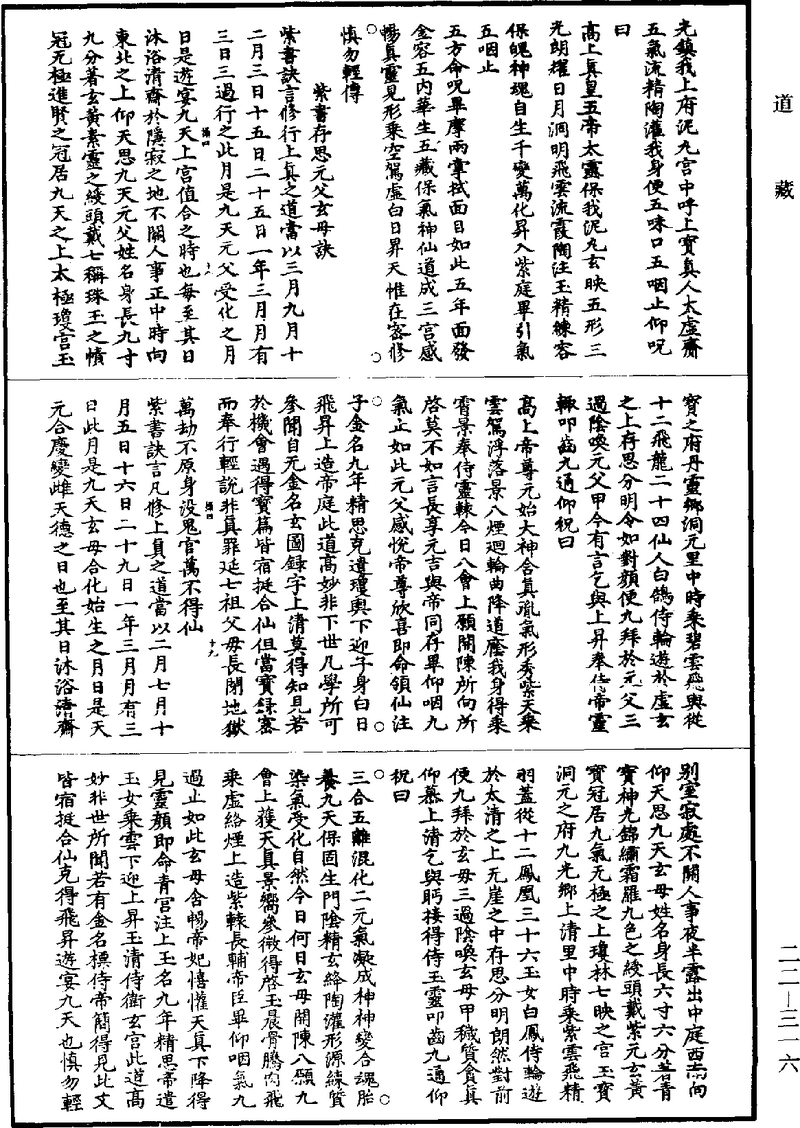 道藏
光鎮我上府泥丸宮中呼上寶真人太虛齋
五氣流精陶灌我身便五味口五咽止仰呪
曰
高上真皇五帝太靈保我泥丸玄映五形三
光朗耀日月洞明飛雲流霞陶注玉精練容
保魄神魂自生千變萬化昇入紫庭畢引氣
五咽止
五方命呪畢摩兩掌拭面目如此五年面發
金容五內華生五藏保氣神仙道成三宮感
暢真靈見形乘空駕虛白日昇天惟在密修
慎勿輕傳
紫書存思元父玄母訣
紫書訣言修行上真之道當以三月九月十
二月三日十五日二十五日一年三月月有
三日三過行之此月是九天元父受化之月
日是遊宴九天上宮值合之時也每至其日
沐浴清齋於隱寂之地不關人事正中時向
東北之上仰天思九天元父姓名身長九寸
九分著玄黃素靈之綬頭戴七稱珠玉之幘
冠无極進賢之冠居九天之上太極瓊宮玉
寶之府丹靈鄉洞元里中時乘碧雲飛輿從
十二飛龍二十四仙人白鵠侍輪遊於虛玄
之上存思分明令如對顏便九拜於元父三
過陰喚元父甲今有言乞與上昇奉侍帝靈
輙叩齒九通仰祝曰
高上帝尊元始大神含真胤氣形秀紫天乘
雲駕浮落景八煙迴輪曲降道廕我身得乘
霄景奉侍靈轅今日八會上願開陳所向所
啓莫不如言長享元吉與帝同存畢仰咽九
氣止如此元父感悅帝尊欣喜即命領仙注
子金名九年精思克遣瓊輿下迎子身白日
飛昇上造帝庭此道高妙非下世凡學所可
參聞自元金名玄圖錄字上清莫得知見若
於機會遇得寶篇皆宿挺合仙但當寶錄密
而奉行輕說非真罪延七祖父母長閉地獄
萬劫不原身沒鬼官萬不得仙
紫書訣言凡修上真之道當以二月七月十
月五日十六日二十九日一年三月月有三
日此月是九天玄母合化始生之月日是天
元合慶變雌天德之日也至其日沐浴清齋
別室寂處不關人事夜半露出中庭西南向
仰天思九天玄母姓名身長六寸六分著青
寶神光錦繡霜羅九色之綬頭戴紫元玄黃
寶冠居九氣无極之上瓊林七映之宮玉寶
洞元之府九光鄉上清里中時乘紫雲飛精
羽蓋從十二鳳凰三十六玉女白鳳侍輪遊
於太清之上无崖之中存思分明朗然對前
便九拜於玄母三過陰喚玄母甲穢質貪真
仰慕上清乞與眄接得侍玉靈叩齒九通仰
祝曰
三合五離混化二元氣凝成神神變合魂胎
養九天保固生門陰精玄絳陶灌形源練質
染氣受化自然今日何日玄母開陳八願九
會上獲天真景嚮參微得啓玉晨骨騰肉飛
乘虛絡煙上造紫轅長輔帝臣畢仰咽氣九
過止如此玄母含暢帝妃憘懽天真下降得
見靈顏即命青宮注上玉名九年精思帝遣
玉女乘雲下迎上昇玉清侍衛玄宮此道高
妙非世所聞若有金名標侍帝簡得見此文
皆宿挺合仙克得飛昇遊宴九天也慎勿輕
二二—三一六